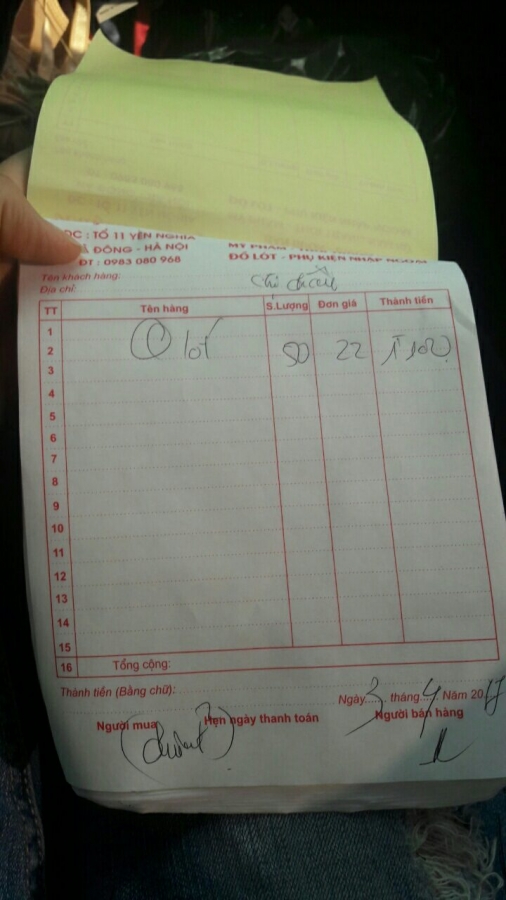 ĐC : TỔ 11 YÊN NGHĨA
HÀ ĐÔNG - HÀ NỘI
ĐT : 0983 080 968
ĐỒ LÓT - PHỤ KIỆN NHẬP NGOẠI
Tên khách hàng:
Địa chỉ:
TT Tên hàng S.Lượng Đơn giá Thành tiền
1
2 Q lót 50 22 1T100
3
4
5
6
7
8
9
10
11
12
13
14
15
16 Tổng cộng:
Thành tiền (Bằng chữ):
Ngày 3 tháng 4 Năm 2017
Người mua Hẹn ngày thanh toán Người bán hàng